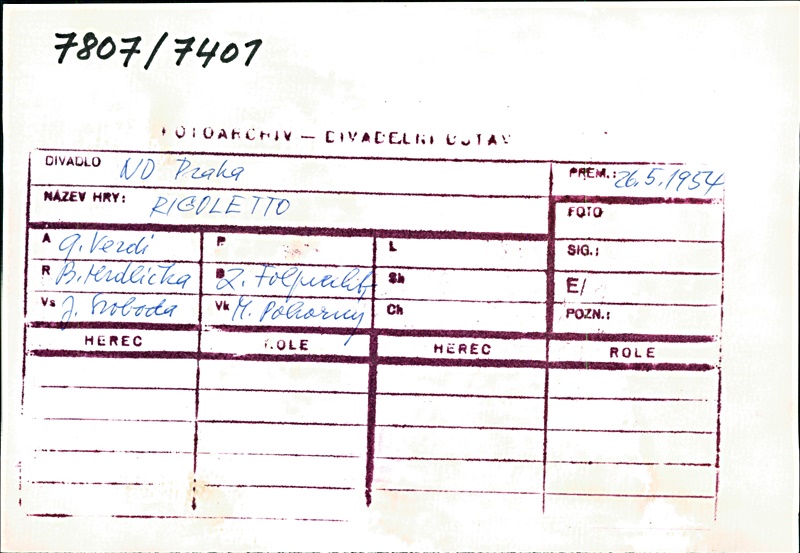 7807/7401
FOTOARCHIV — DIVADELNÍ ÚSTAV
DIVADLO ND Praha
PREM.: 26.5.1954
NÁZEV HRY: RIGOLETTO
FOTO
A G. Verdi P L
SIG.:
R B. Hrdlička D Z. Folprecht Sh
E/
Vs J. Svoboda Vk M. Pokorný Ch
POZN.:
HEREC ROLE HEREC ROLE